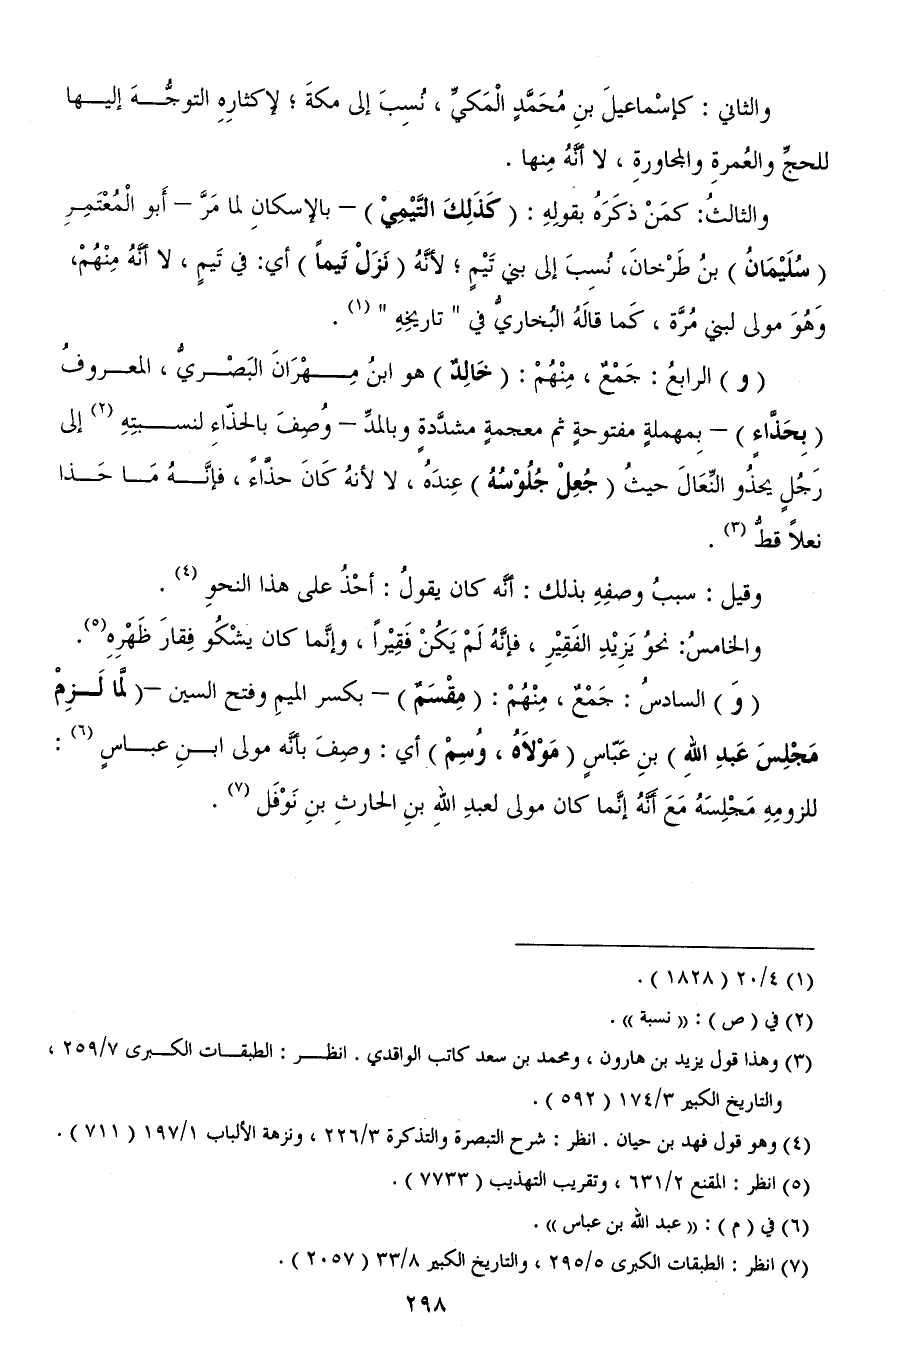 والثاني : كإسْماعيلَ بنِ مُحَمَّدٍ الْمَكيِّ ، نُسِبَ إلى مكةَ ؛ لإكثارِهِ التوجُّـــهَ إليـــها
للحجِّ والعُمرةِ والمجاورةِ ، لا أنَّهُ مِنها .
والثالثُ: كمَنْ ذكرَهُ بقولِهِ : ( كَذَلِكَ التَّيْمِيْ ) – بالإسكانِ لما مَرَّ – أبو الْمُعْتَمِـرِ
( سُلَيْمَانُ ) بنُ طَرْخانَ، نُسِبَ إلى بني تَيْمٍ ؛ لأنَّهُ ( نَزَلْ تَيماً ) أي: في تَيمٍ ، لا أنَّهُ مِنْهُمْ،
وَهُوَ مولى لبني مُرَّة ، كَما قالَهُ البُخاريُّ في " تاريخِهِ " (١) .
( و ) الرابعُ : جَمْعٌ ، مِنْهُمْ : ( خَالِدٌ ) هو ابنُ مِـــهْرَانَ البَصْـريُّ ، المعـروفُ
( بِحَذَّاءٍ ) – بمهملةٍ مفتوحةٍ ثم معجمةٍ مشدَّدةٍ وبالمدِّ – وُصِفَ بالحذّاءِ لنســـبتِهِ (٢) إلى
رَجُلٍ يحذُو النِّعَالَ حيثُ ( جُعِلْ جُلُوْسُهُ ) عِندَهُ ، لا لأنهُ كَانَ حذَّاءً ، فإنَّـــهُ مَـا حَـــذا
نعلاً قطُّ (٣) .
وقيل : سببُ وصفِهِ بذلك : أنَّه كان يقولُ : أحْذُ على هذا النحوِ (٤) .
والخامسُ: نحوُ يَزِيْدِ الفَقِيْرِ ، فإنَّهُ لَمْ يَكُنْ فَقِيْراً ، وإنَّما كان يشْكُو فِقارَ ظَهْرِهِ(٥).
( وَ ) السادسُ : جَمْعٌ ، مِنْهُمْ : ( مِقْسَمٌ ) – بكسر الميمِ وفتح السين –( لَّما لَـزِمْ
مَجْلِسَ عَبدِ اللهِ ) بنِ عَبّاسٍ ( مَوْلاَهُ ، وُسِمْ ) أي : وصِفَ بأنَّه مولى ابـنِ عبـاسٍ (٦) :
للزومِهِ مَجْلِسَهُ مَعَ أَنَّهُ إنَّما كان مولى لعبدِ اللهِ بنِ الحارثِ بنِ نَوْفَلٍ (٧) .
(١) ٢٠/٤ ( ١٨٢٨ ) .
(٢) في ( ص ) : « نسبة » .
(٣) وهذا قول يزيد بن هارون ، ومحمد بن سعد كاتب الواقدي . انظـــر : الطبقـات الكـبرى ٢٥٩/٧ ،
والتاريخ الكبير ١٧٤/٣ ( ٥٩٢ ) .
(٤) وهو قول فهد بن حيان . انظر : شرح التبصرة والتذكرة ٢٢٦/٣ ، ونزهة الألباب ١٩٧/١ ( ٧١١ ) .
(٥) انظر : المقنع ٦٣١/٢ ، وتقريب التهذيب ( ٧٧٣٣ ) .
(٦) في ( م ) : « عبد الله بن عباس » .
(٧) انظر : الطبقات الكبرى ٢٩٥/٥ ، والتاريخ الكبير ٣٣/٨ ( ٢٠٥٧ ) .
٢٩٨